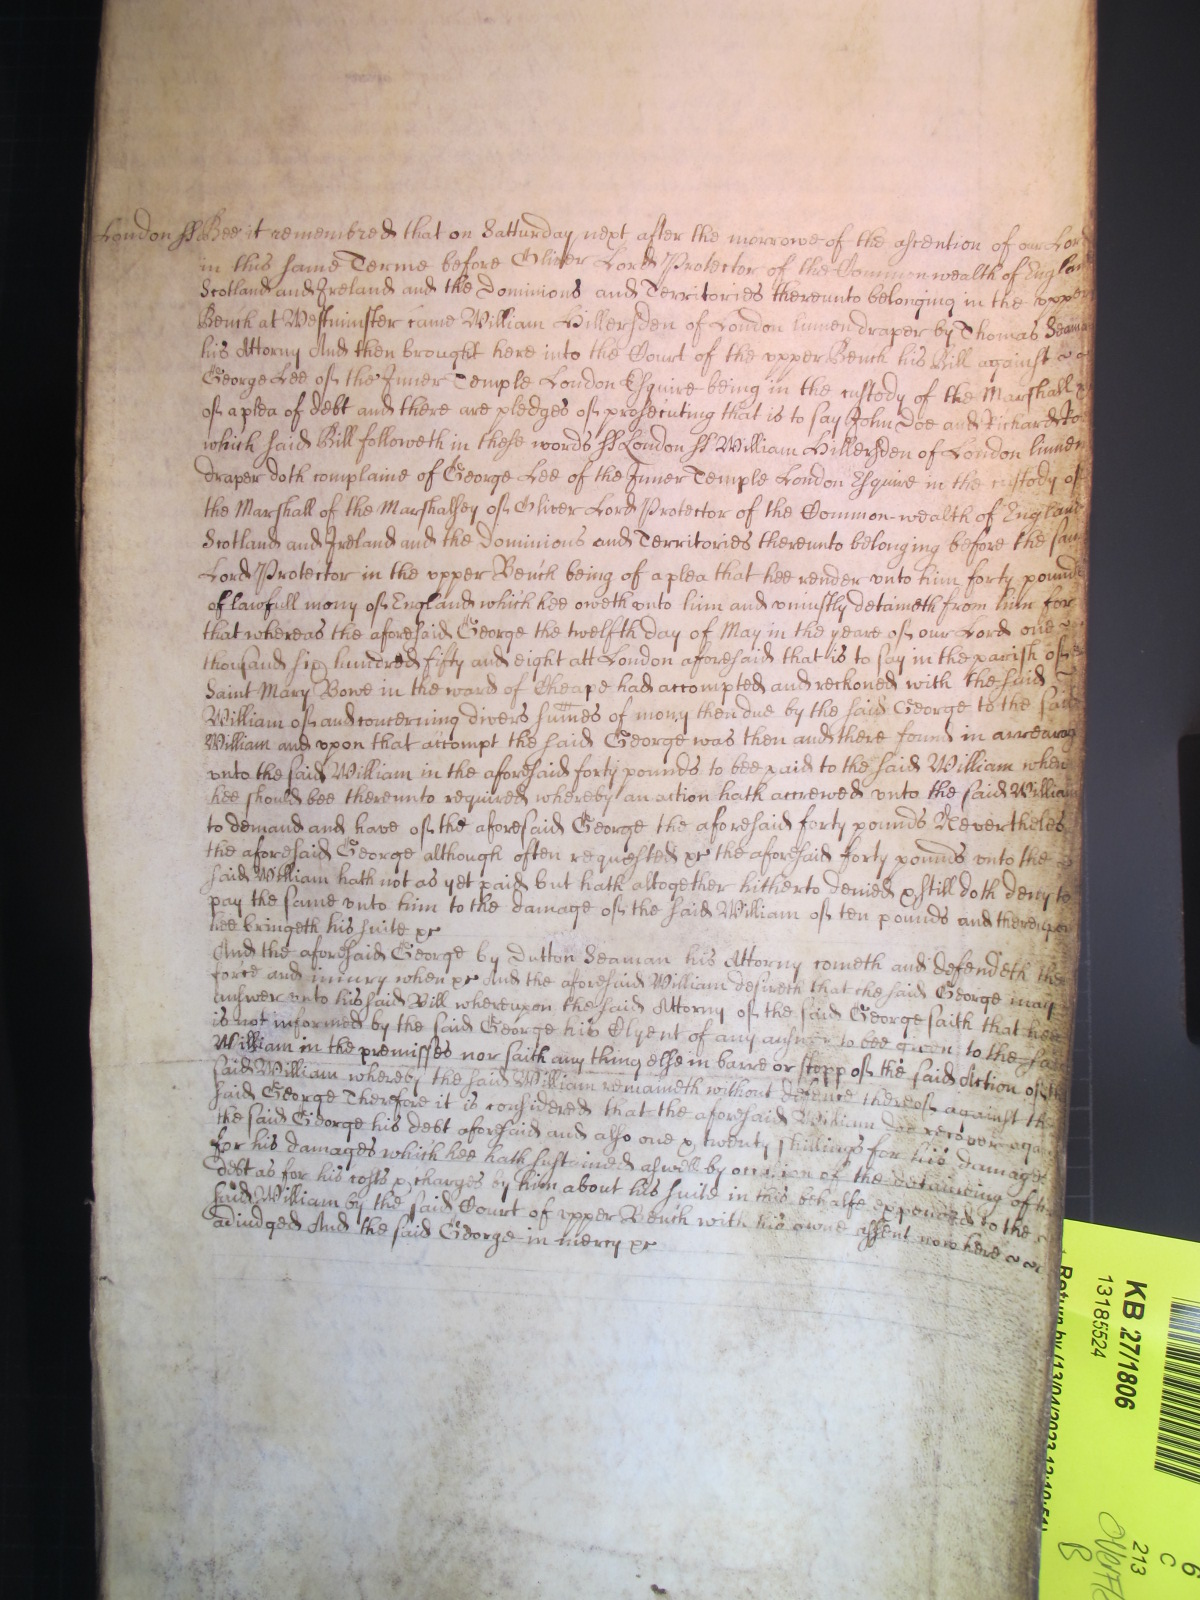 London ss Bee it remembred that on Satturday next after the morrowe of the ascention of our Lord
in this same Terme before Oliver Lord Protector of the Common wealth of England
Scotland and Ireland and the Dominions and Territories thereunto belonging in the upper
Bench at Westminster came William Hillersden of London linnen draper by Thomas Seaman
his Attorny And then brought here into the Court of the upper Bench his Bill against
George Lee of the Inner Temple London Esquire being in the custody of the Marshall &
of a plea of debt and there are pledges of prosecuting that is to say John Doe and Richard Roe
which said Bill followeth in these words ss London ss William Hillersden of London linnen
draper doth complaine of George Lee of the Inner Temple London Esquire in the custody of
the Marshall of the Marshalsey of Oliver Lord Protector of the Common-wealth of England
Scotland and Ireland and the Dominions and Territories thereunto belonging before the said
Lord Protector in the upper Bench being of a plea that hee render vnto him forty pounds
of lawfull mony of England which hee oweth vnto him and vniustly detaineth from him for
that whereas the aforesaid George the twelfth day of May in the yeare of our Lord one
thousand six hundred fifty and eight att London aforesaid that is to say in the parish of
Saint Mary Bowe in the ward of Cheape had accompted and reckoned with the said
William of and concerning divers summes of mony then due by the said George to the said
William and vpon that accompt the said George was then and there found in arrearag
vnto the said William in the aforesaid forty pounds to bee paid to the said William when
hee should bee thereunto required whereby an action hath accrewed vnto the said William
to demand and have of the aforesaid George the aforesaid forty pounds Neverthelesse
the aforesaid George although often requested &c the aforesaid forty pounds vnto the
said William hath not as yet paid but hath altogether hitherto denied & still doth deny to
pay the same vnto him to the damage of the said William of ten pounds and thereupon
hee bringeth his suite &c
And the aforesaid George by Dutton Seaman his Attorny cometh and defendeth the
force and iniury when &c And the aforesaid William desireth that the said George may
answer vnto his said Bill whereupon the said Attorny of the said George saith that hee
is not informed by the said George his Clyent of any answer to bee given to the said
William in the premisses nor saith any thing else in barre or stopp of the said Action of the
said William whereby the said William remaineth without defence thereof against the
said George Therefore it is considered that the aforesaid William doe recover against
the said George his debt aforesaid and also one & twenty shillings for his damages
for his damages which hee hath sustained aswell by occasion of the detaineing of the
debt as for his costs & charges by him about his suite in this behalfe expended to the
said William by the said Court of vpper Bench with his owne assent now here
adiudged And the said George in mercy &c
KB 27/1806
13185524
Return by (13/04/2023 12:10:51)
213
C
6
B